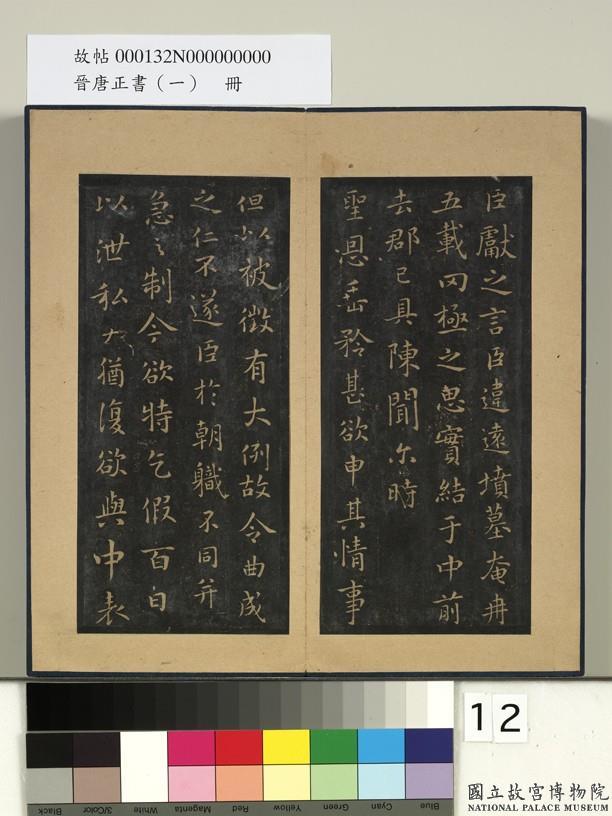 故帖 000132N000000000
晉唐正書（一） 冊
臣獻之言臣違遠墳墓奄冉
五載罔極之思實結于中前
去郡已具陳聞尒時
聖恩垂矜甚欲申其情事
但以被徵有大例故令曲成
之仁不遂臣於朝職不同并
急之制今欲特乞假百日
以泄私 猶復欲與中表
12
Black
3/Color
White
Magenta
Red
Yellow
Green
Cyan
Blue
國立故宮博物院
NATIONAL PALACE MUSEUM